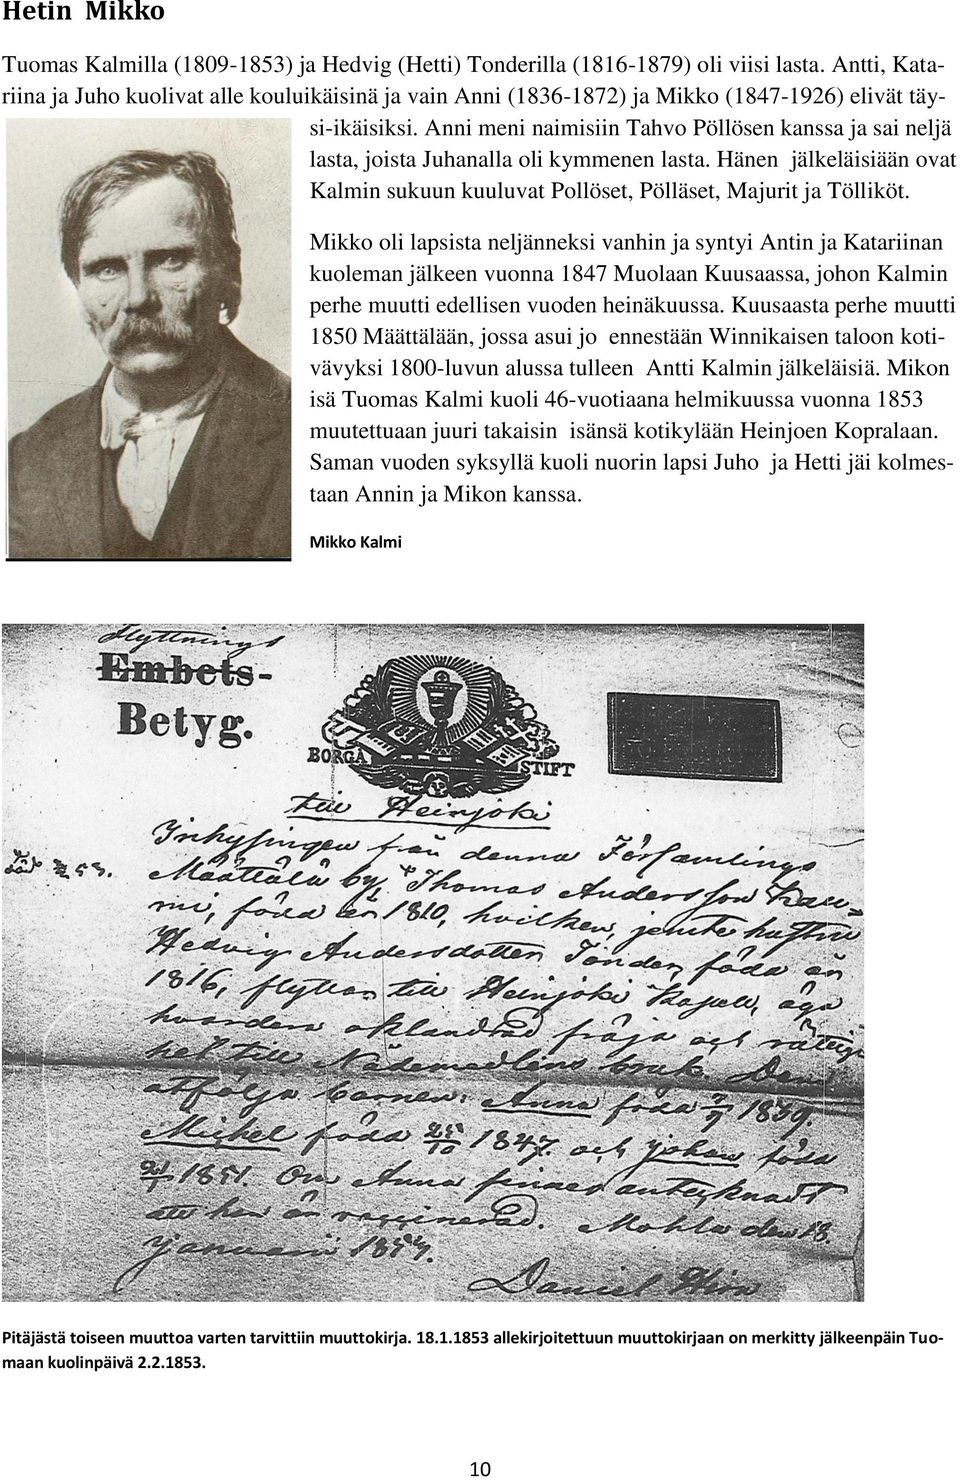 Hetin Mikko
Tuomas Kalmilla (1809-1853) ja Hedvig (Hetti) Tonderilla (1816-1879) oli viisi lasta. Antti, Kata-
riina ja Juho kuolivat alle kouluikäisinä ja vain Anni (1836-1872) ja Mikko (1847-1926) elivät täy-
si-ikäisiksi. Anni meni naimisiin Tahvo Pöllösen kanssa ja sai neljä
lasta, joista Juhanalla oli kymmenen lasta. Hänen jälkeläisiään ovat
Kalmin sukuun kuuluvat Pollöset, Pölläset, Majurit ja Tölliköt.
Mikko oli lapsista neljänneksi vanhin ja syntyi Antin ja Katariinan
kuoleman jälkeen vuonna 1847 Muolaan Kuusaassa, johon Kalmin
perhe muutti edellisen vuoden heinäkuussa. Kuusaasta perhe muutti
1850 Määttälään, jossa asui jo ennestään Winnikaisen taloon koti-
vävyksi 1800-luvun alussa tulleen Antti Kalmin jälkeläisiä. Mikon
isä Tuomas Kalmi kuoli 46-vuotiaana helmikuussa vuonna 1853
muutettuaan juuri takaisin isänsä kotikylään Heinjoen Kopralaan.
Saman vuoden syksyllä kuoli nuorin lapsi Juho ja Hetti jäi kolmes-
taan Annin ja Mikon kanssa.
Mikko Kalmi
Flyttnings
Embets-
Betyg.
BORGÅ STIFT
till Heinjoki
Inhysingen från denna Församlings
Määttälä by, Thomas Andersson Kal=
mi, född år 1810, hvilken, jemte hustru
Hedvig Andersdotter Tonder, född år
1816, flyttar till Heinjoki Kapell, äga
hvardera oklandrad fräjd och rättig
het till Nådemedlens bruk. Dem
åtfölja barnen: Anna född 1839.
Michel född 25/10 1847. och Johan född
1851. Om Anna finnes antecknadt
att hon är vaccinerad. Mohla den 18.
Januari 1853.
Daniel Hirn
Pitäjästä toiseen muuttoa varten tarvittiin muuttokirja. 18.1.1853 allekirjoitettuun muuttokirjaan on merkitty jälkeenpäin Tuo-
maan kuolinpäivä 2.2.1853.
10